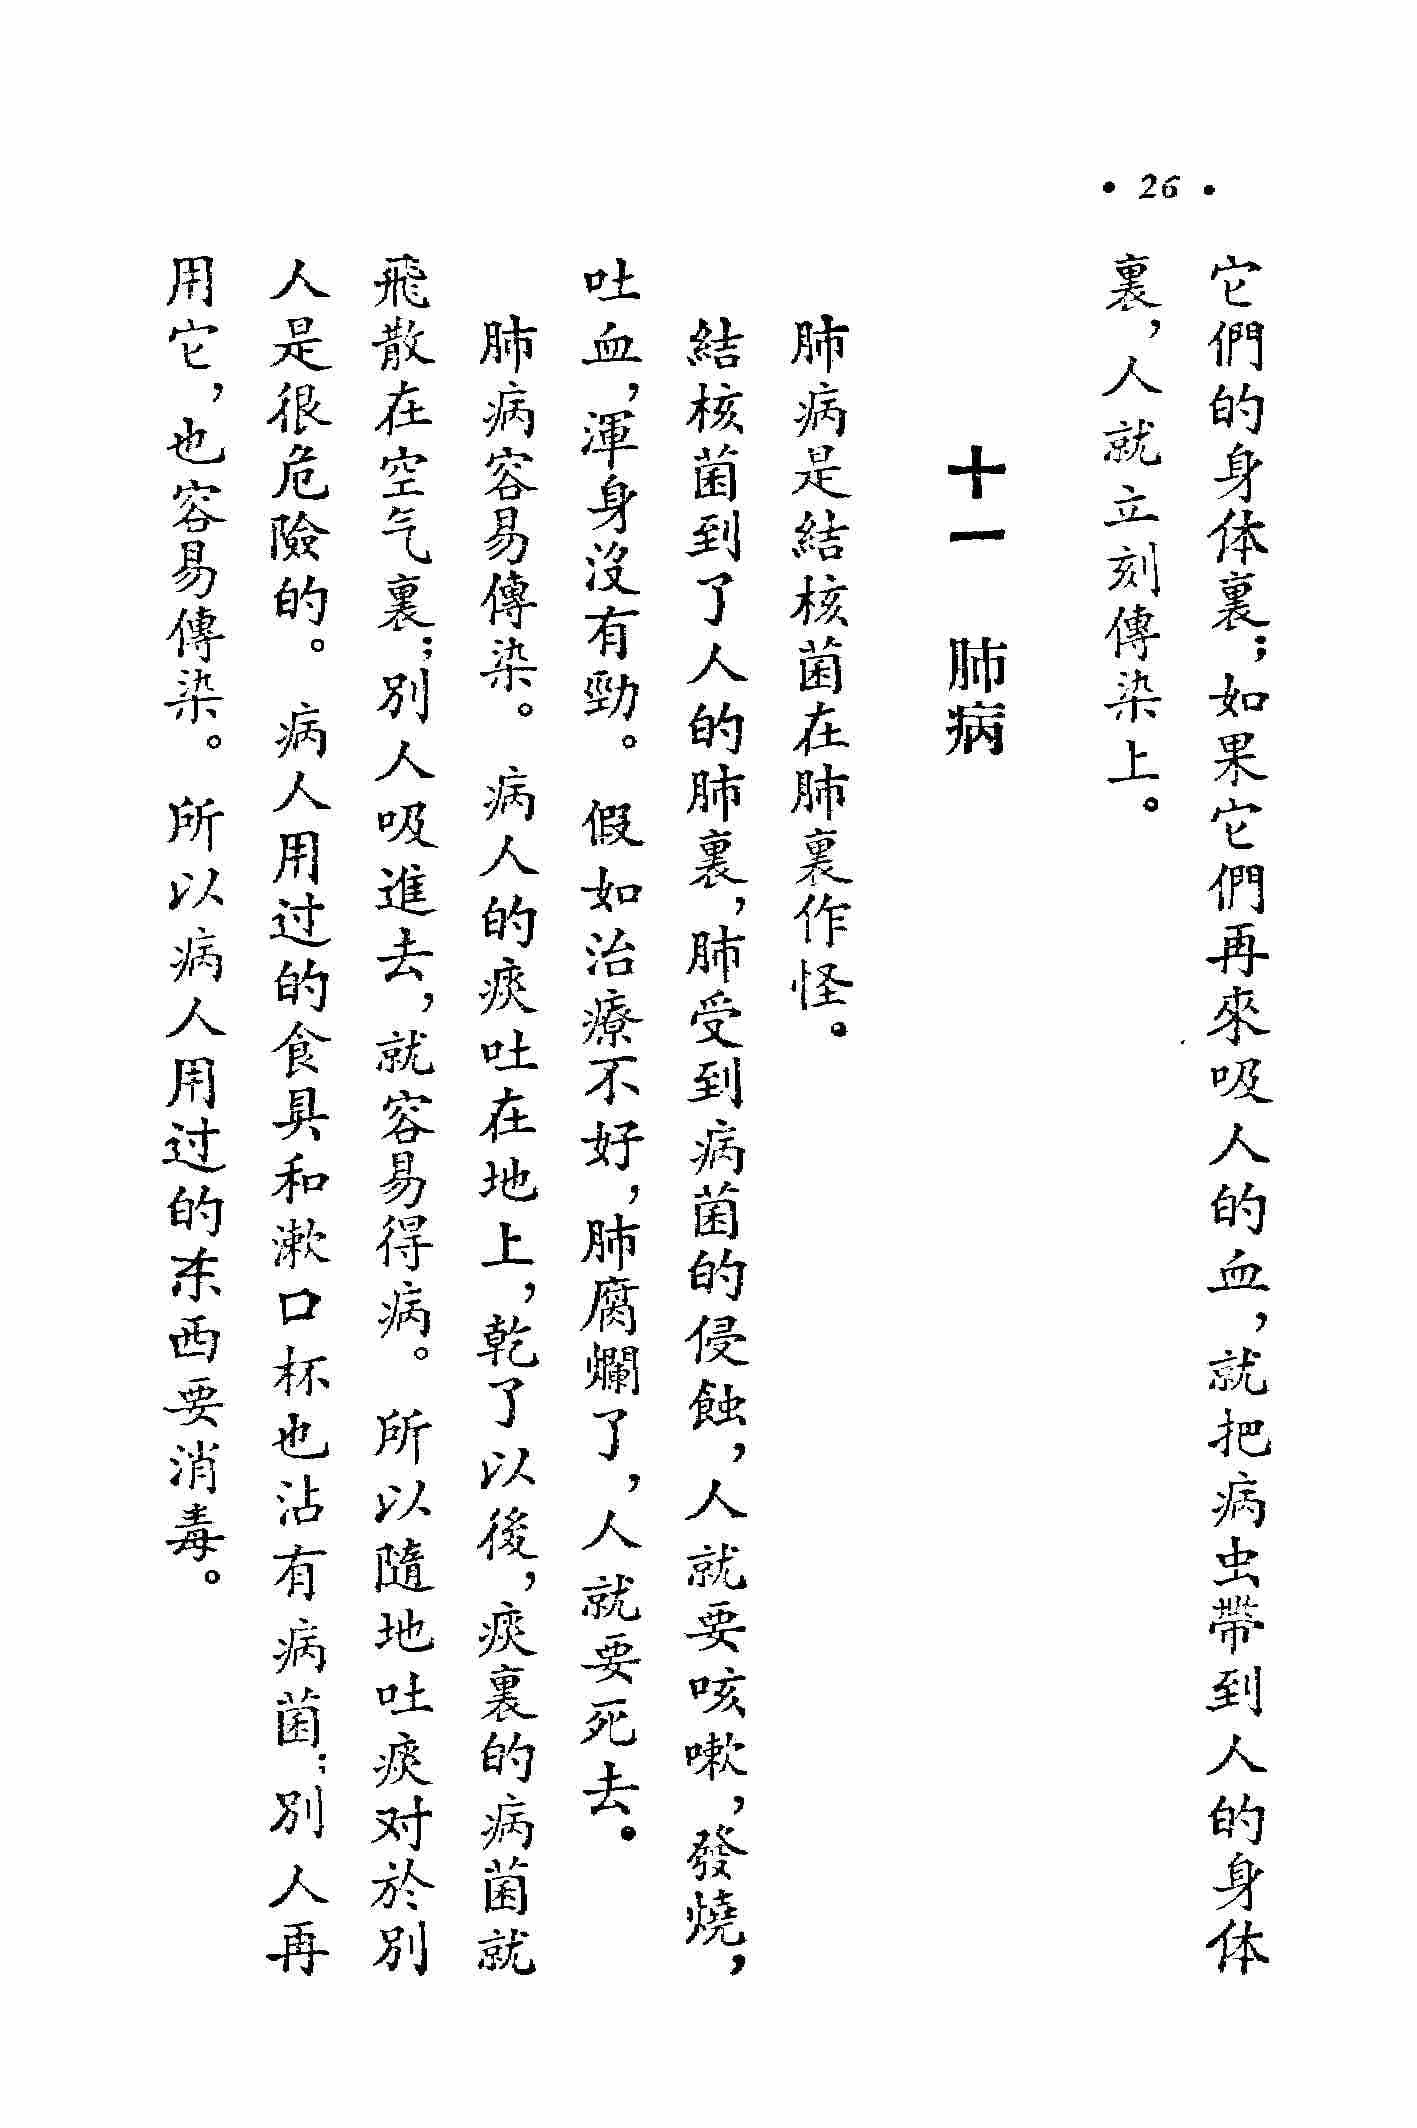 • 26 •
它們的身体裏；如果它們再來吸人的血，就把病虫帶到人的身体
裏，人就立刻傳染上。
十一　肺病
肺病是結核菌在肺裏作怪。
結核菌到了人的肺裏，肺受到病菌的侵蝕，人就要咳嗽，發燒，
吐血，渾身沒有勁。假如治療不好，肺腐爛了，人就要死去。
肺病容易傳染。病人的痰吐在地上，乾了以後，痰裏的病菌就
飛散在空气裏；別人吸進去，就容易得病。所以隨地吐痰对於別
人是很危險的。病人用过的食具和漱口杯也沾有病菌；別人再
用它，也容易傳染。所以病人用过的东西要消毒。